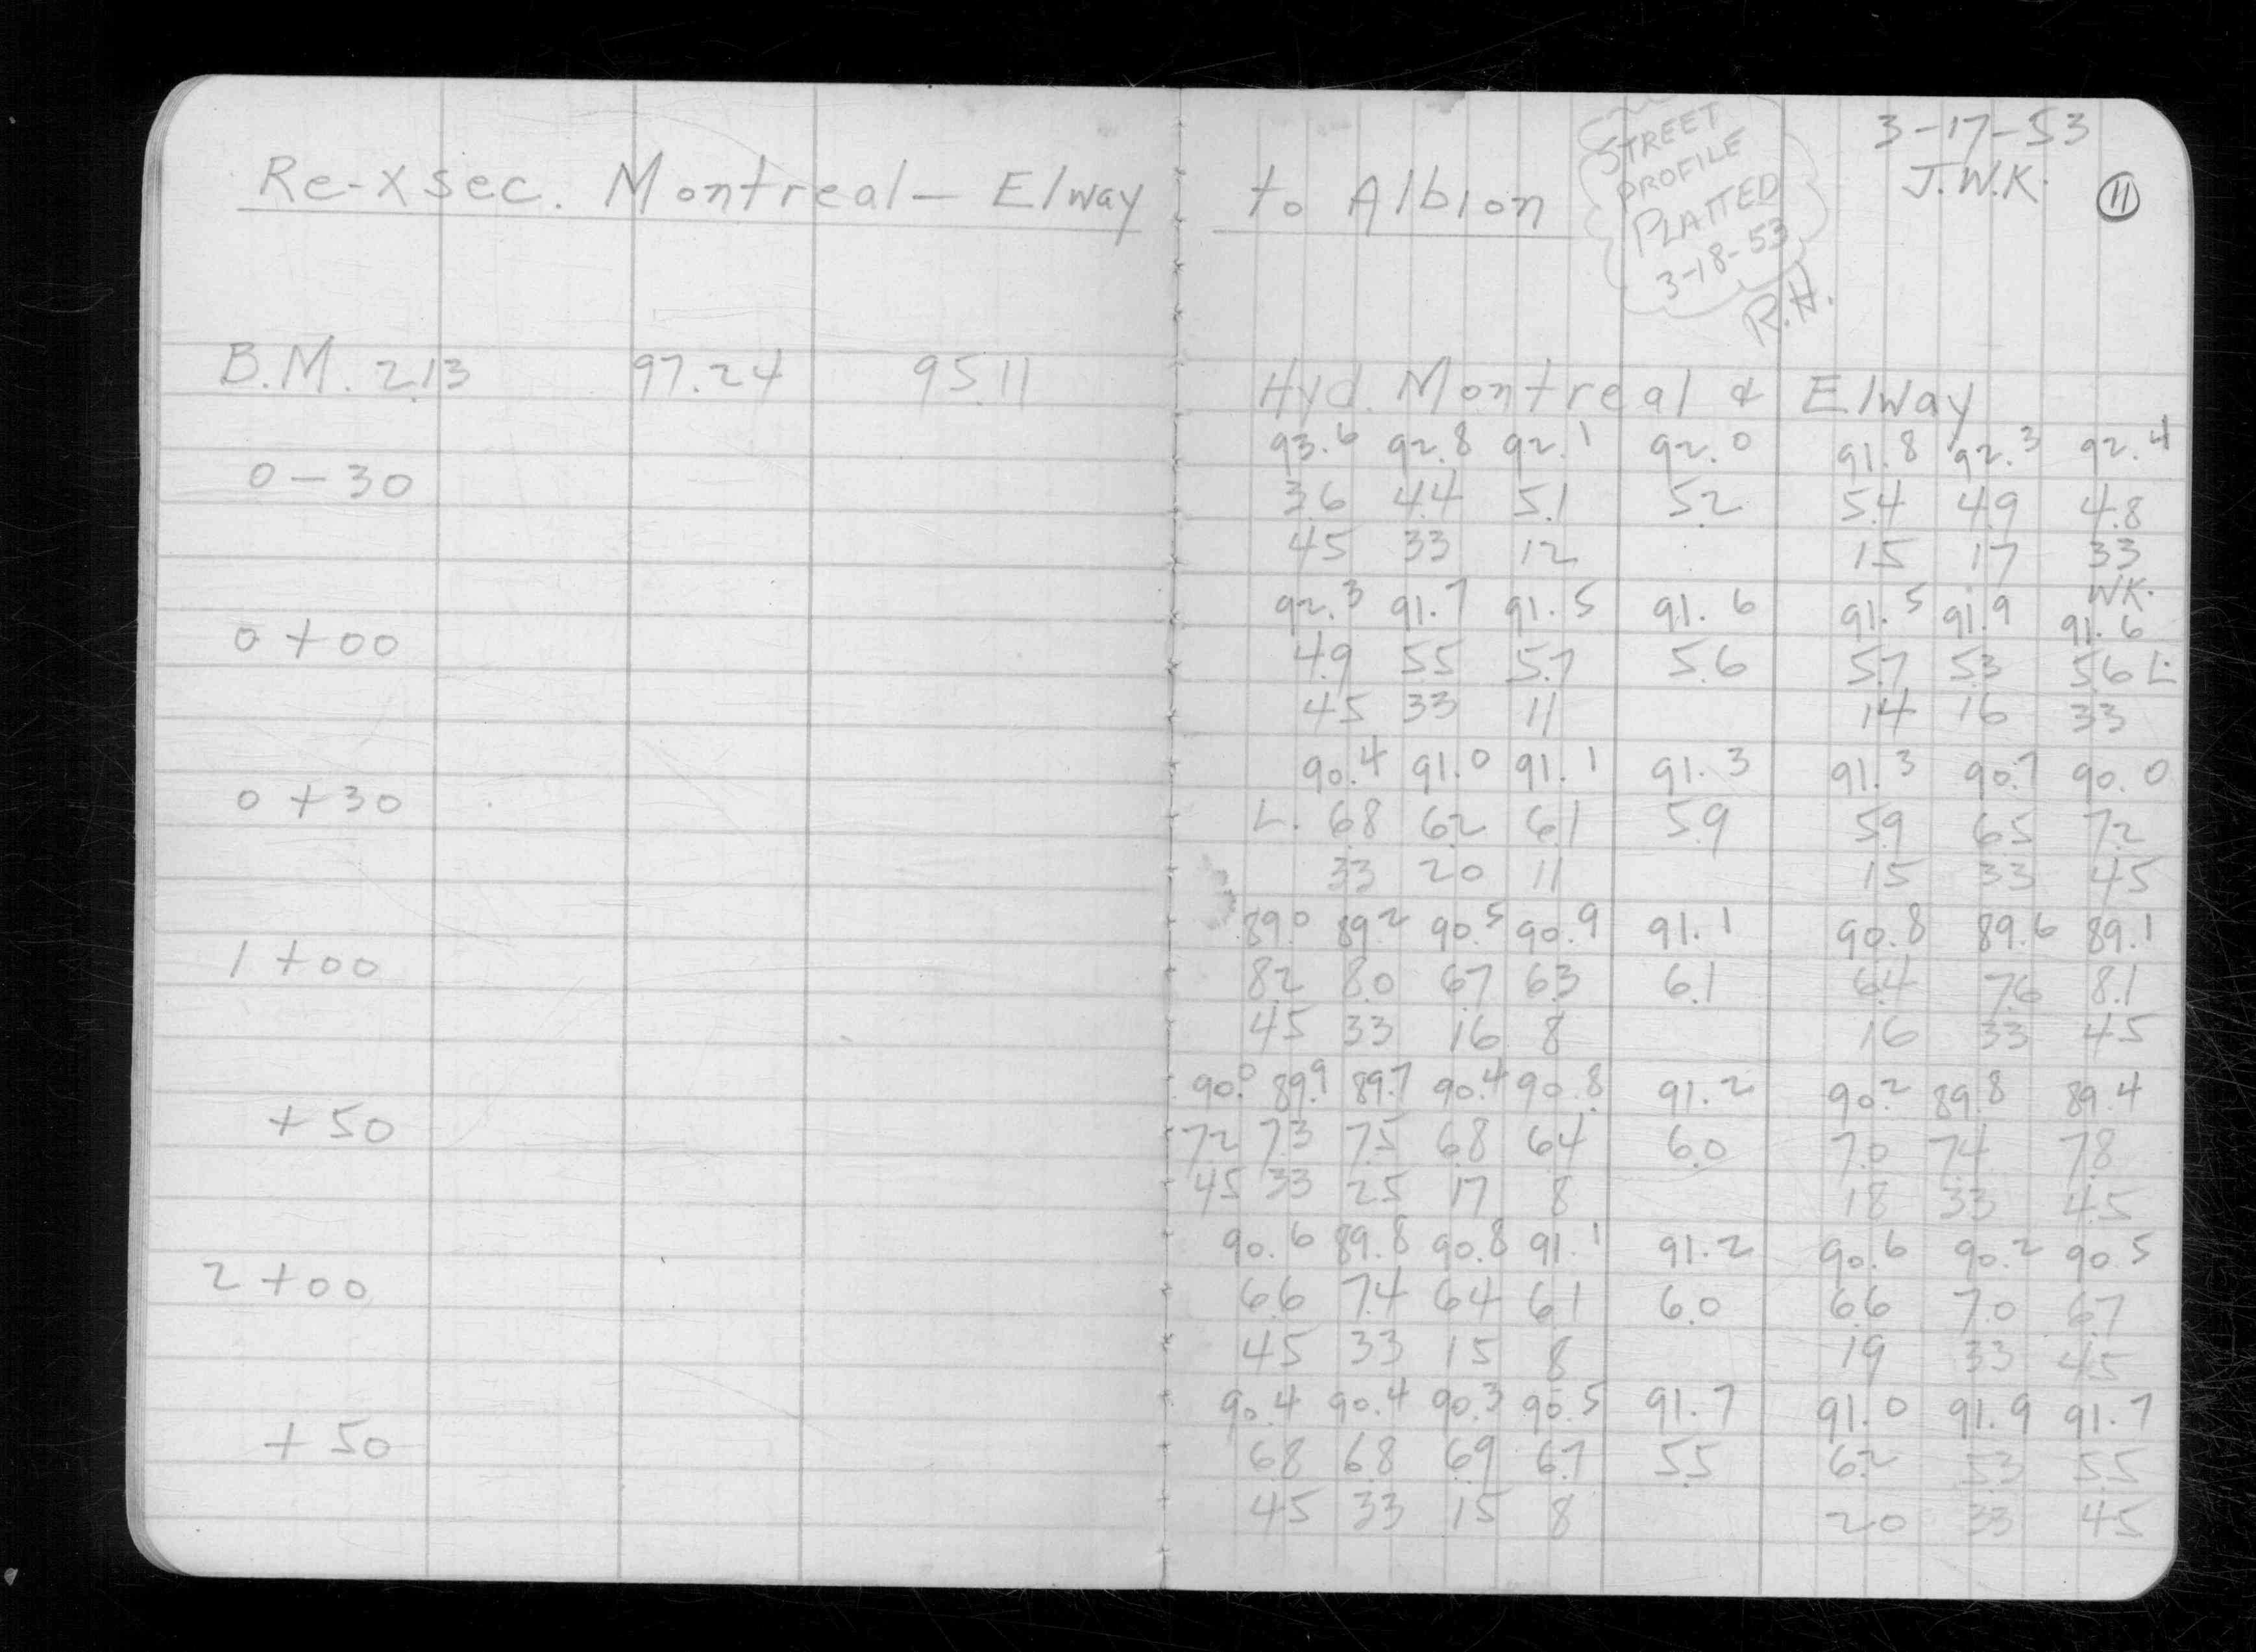 3-17-53
J.W.K. 11
STREET
PROFILE
PLATTED
3-18-53
R.H.
Re-Xsec. Montreal - Elway to Albion
B.M. 2.13 97.24 95.11 Hyd. Montreal & Elway
93.6 92.8 92.1 92.0 91.8 92.3 92.4
0-30 3.6 4.4 5.1 5.2 5.4 4.9 4.8
45 33 12 15 17 33
WK.
92.3 91.7 91.5 91.6 91.5 91.9 91.6
0+00 4.9 5.5 5.7 5.6 5.7 5.3 5.6 L.
45 33 11 14 16 33
90.4 91.0 91.1 91.3 91.3 90.7 90.0
0+30 L. 6.8 6.2 6.1 5.9 5.9 6.5 7.2
33 20 11 15 33 45
89.0 89.2 90.5 90.9 91.1 90.8 89.6 89.1
1+00 8.2 8.0 6.7 6.3 6.1 6.4 7.6 8.1
45 33 16 8 16 33 45
90.0 89.9 89.7 90.4 90.8 91.2 90.2 89.8 89.4
+50 7.2 7.3 7.5 6.8 6.4 6.0 7.0 7.4 7.8
45 33 25 17 8 18 33 45
90.6 89.8 90.8 91.1 91.2 90.6 90.2 90.5
2+00 6.6 7.4 6.4 6.1 6.0 6.6 7.0 6.7
45 33 15 8 19 33 45
90.4 90.4 90.3 90.5 91.7 91.0 91.9 91.7
+50 6.8 6.8 6.9 6.7 5.5 6.2 5.3 5.5
45 33 15 8 20 33 45